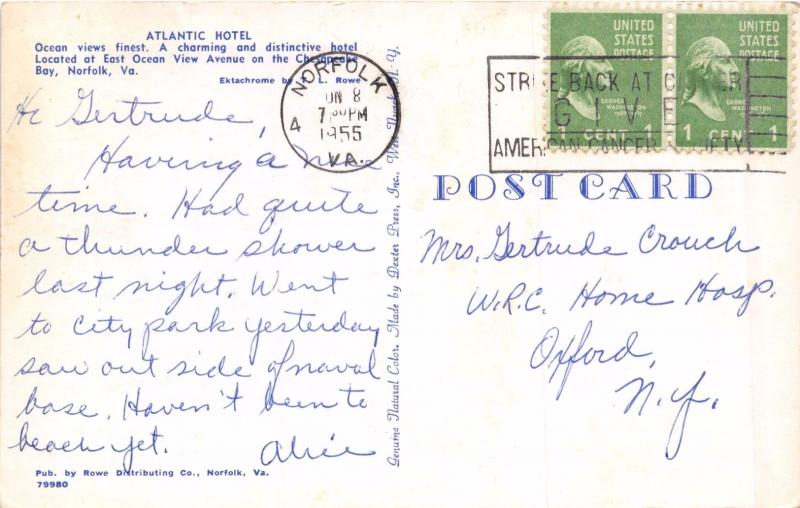 ATLANTIC HOTEL
Ocean views finest. A charming and distinctive hotel
Located at East Ocean View Avenue on the Chesapeake
Bay, Norfolk, Va.
Ektachrome by L. Rowe
Hi Gertrude,
Having a nice
time. Had quite
a thunder shower
last night. Went
to city park yesterday
saw out side of naval
base. Haven't been to
beach yet. Alice
Pub. by Rowe Distributing Co., Norfolk, Va.
79980
Genuine Natural Color. Made by Dexter Press, Inc., West Nyack, N. Y.
NORFOLK
8
PM
4
1955
VA.
STRIKE BACK AT CANCER
GIVE
AMERICAN CANCER SOCIETY
UNITED
STATES
POSTAGE
GEORGE
WASHINGTON
1 CENT 1
UNITED
STATES
POSTAGE
GEORGE
WASHINGTON
1 CENT 1
POST CARD
Mrs. Gertrude Crouch
W.R.C. Home Hosp.
Oxford,
N.Y.